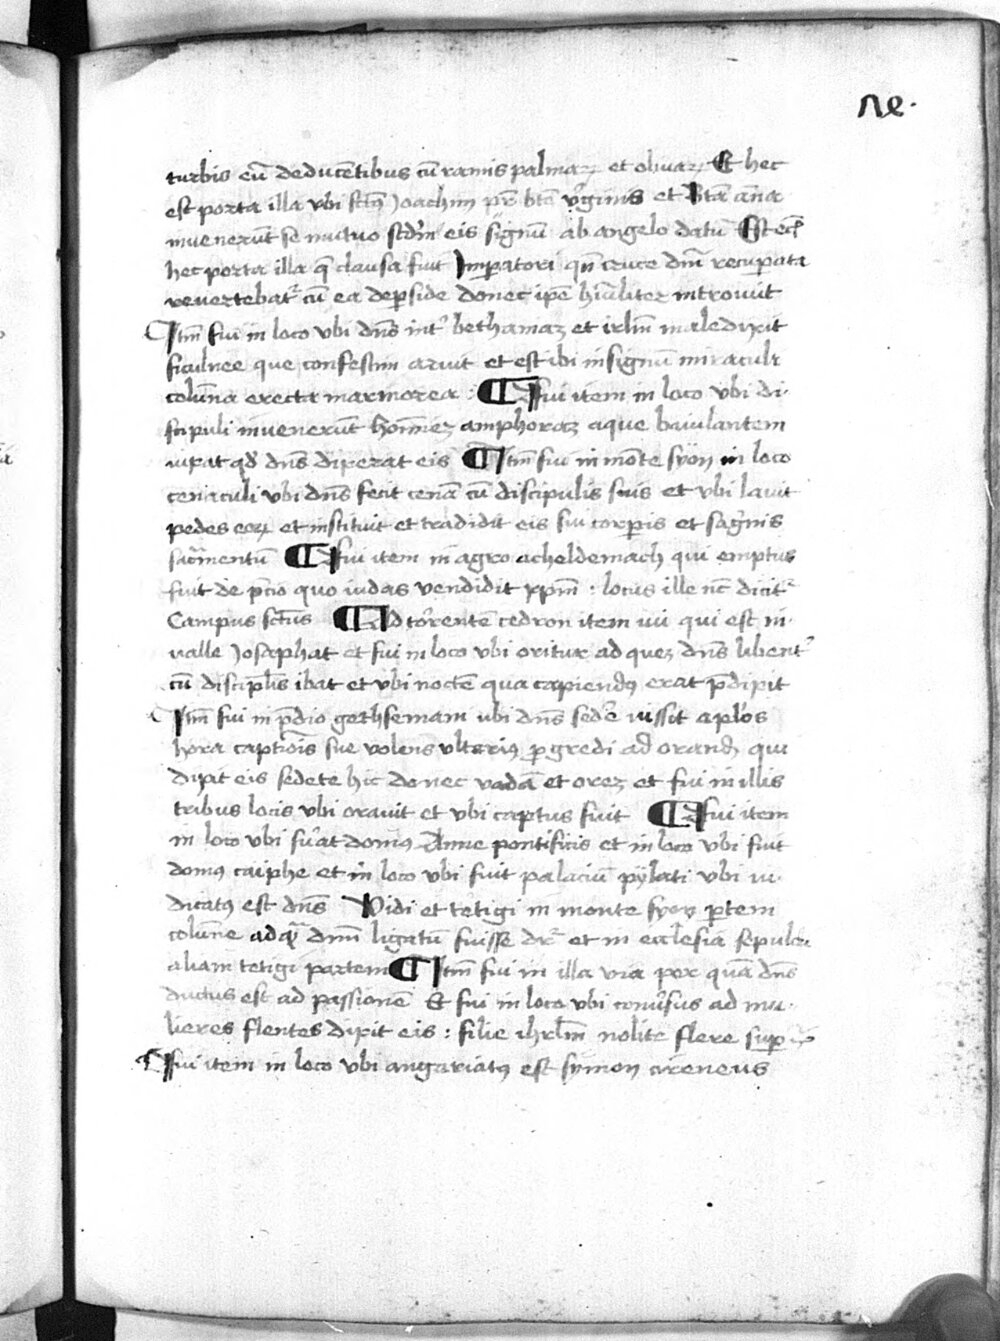 turbis eū deducētibus cū ramis palmaꝝ et oliuaꝝ Et hec
est porta illa vbi sctūs Joachim pr̄ btē v̓ginis et Btā āna
inuenerūt se mutuo scd̓m eis signū ab angelo datū Est eciā
hec porta illa q̄ clausa fuit Imꝑatori qn̄ cruce dn̄i recuꝑata
reuertebat᷑ cū ea de ꝑside donec ip̄e hūiliter introiuit
Itm̄ fui in loco vbi dn̄s int᷑ bethaniaȝ et irlm̄ maledixit
ficulnee que confestim aruit et est ibi in signū miraculi
colūna erecta marmorea : ¶ fui item in loco vbi di-
scipuli inuenerūt hoīneȝ amphoraȝ aque baiulantem
iuxat qd̓ dn̄s dixerat eis ¶ Itm̄ fui in mōte syon in loco
cenaculi vbi dn̄s fecit cenā cū discipulis suis et vbi lauit
pedes eoꝝ et instituit et tradidit eis sui corꝑis et sāgīnis
sacr̄mentū ¶ fui item in agro acheldemach qui emptus
fuit de p̄cio quo iudas vendidit xp̄m : locus ille nc̄ dicit᷑
Campus sctūs ¶ Ad tōrentē cedron item iui qui est in
ualle Josaphat et fui in loco vbi oritur ad queȝ dn̄s libent᷑
cū discipl̄is ibat et vbi noctē qua capiendꝰ erat p̄dixit
Itm̄ fui in p̄dio gethsemani ubi dn̄s sedēr iussit apl̓os
hora captiōis sue volens vlteriꝰ ꝓgredi ad orandꝫ qui
dixit eis sedete hic donec vadā et oreȝ et fui in illis
tribus locis vbi orauit et vbi captus fuit ¶ fui item
in loco vbi fu̓at domꝰ Anne pontificis et in loco vbi fuit
domꝰ caiphe et in loco vbi fuit palaciū pylati vbi iu-
dicatꝰ est dn̄s Vidi et tetigi in monte syon ꝑtem
colūne ad qᷓ dnm̄ ligatū fuisse dr̄ et in ecclesia sepulcri
aliam tetigi partem ¶ Itm̄ fui in illa via per quā dn̄s
ductus est ad passionē Et fui in loco vbi conu̓sus ad mu-
lieres flentes dixit eis : filie ihrlm̄ nolite flere suꝑ
fui item in loco vbi angariatꝰ est symon cireneus